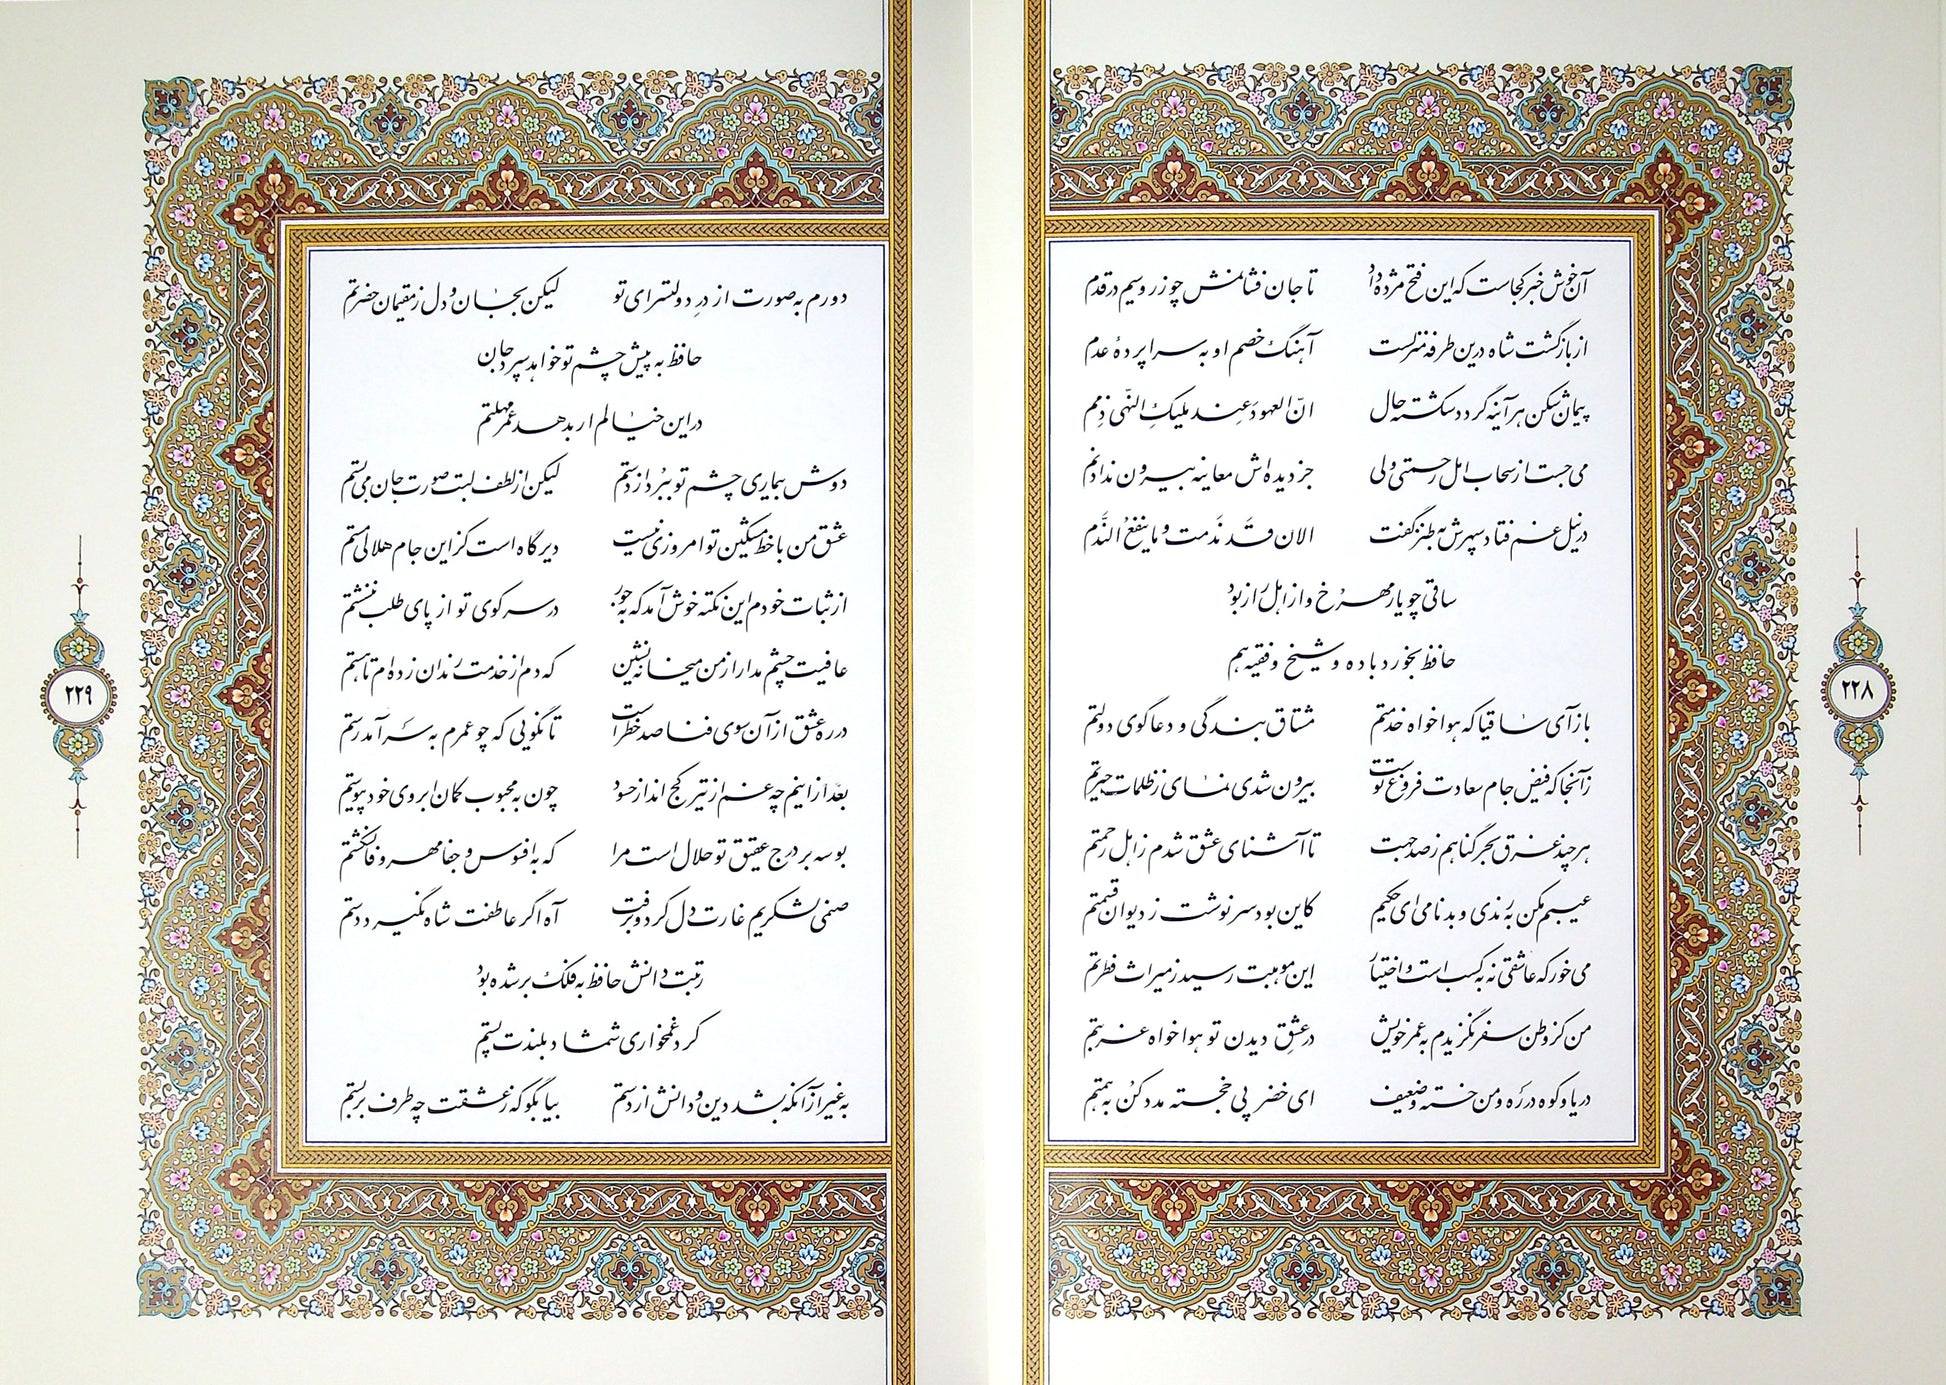 آن خوش خبر کجاست که این فتح مژده داد تا جان فشانمش چو زر و سیم در قدم
از بازگشت شاه درین طرفه منزلست آهنگ خصم او به سراپردهٔ عدم
پیمان شکن هر آینه گردد شکسته حال انّ العهود عِند ملیکِ النّهی ذِمم
می جست از سحاب امل رحمتی ولی جز دیده اش معاینه بیرون نداد نم
در نیل غم فتاد سپهرش به طنز گفت الان قَد نَدَمت و ما ینفعُ النَّدَم
ساقی چو یار مهرخ و از اهل راز بود
حافظ بخورد باده و شیخ و فقیه هم
بازآی ساقیا که هواخواه خدمتم مشتاق بندگی و دعاگوی دولتم
زآنجا که فیض جام سعادت فروغ توست بیرون شدی نمای ز ظلمات حیرتم
هر چند غرق بحر گناهم ز صد جهت تا آشنای عشق شدم ز اهل رحمتم
عیبم مکن به رندی و بدنامی ای حکیم کاین بود سرنوشت ز دیوان قسمتم
می خور که عاشقی نه به کسب است و اختیار این موهبت رسید ز میراث فطرتم
من کز وطن سفر نگزیدم به عمر خویش در عشق دیدن تو هواخواه غربتم
دریا و کوه در ره و من خسته و ضعیف ای خضر پی خجسته مدد کن به همتم
۲۲۸
دورم به صورت از درِ دولتسرای تو لیکن بجان و دل ز مقیمان حضرتم
حافظ به پیش چشم تو خواهد سپرد جان
در این خیالم ار بدهد عمر مهلتم
دوش بیماری چشم تو ببرد از دستم لیکن از لطف لبت صورت جان می بستم
عشق من با خط مشکین تو امروزی نیست دیرگاه است کز این جام هلالی مستم
از ثبات خودم این نکته خوش آمد که به جور در سر کوی تو از پای طلب ننشستم
عافیت چشم مدار از من میخانه نشین که دم از خدمت رندان زده ام تا هستم
در ره عشق از آن سوی فنا صد خطر است تا نگویی که چو عمرم به سر آمد رستم
بعد از اینم چه غم از تیر کج انداز حسود چون به محبوب کمان ابروی خود پیوستم
بوسه بر درج عقیق تو حلال است مرا که به افسوس و جفا مهر وفا نشکستم
صنمی لشکریم غارت دل کرد و برفت آه اگر عاطفت شاه نگیرد دستم
رتبت دانش حافظ به فلک بر شده بود
کرد غمخواری شمشاد بلندت پستم
به غیر از آنکه بشد دین و دانش از دستم بیا بگو که ز عشقت چه طرف بربستم
۲۲۹